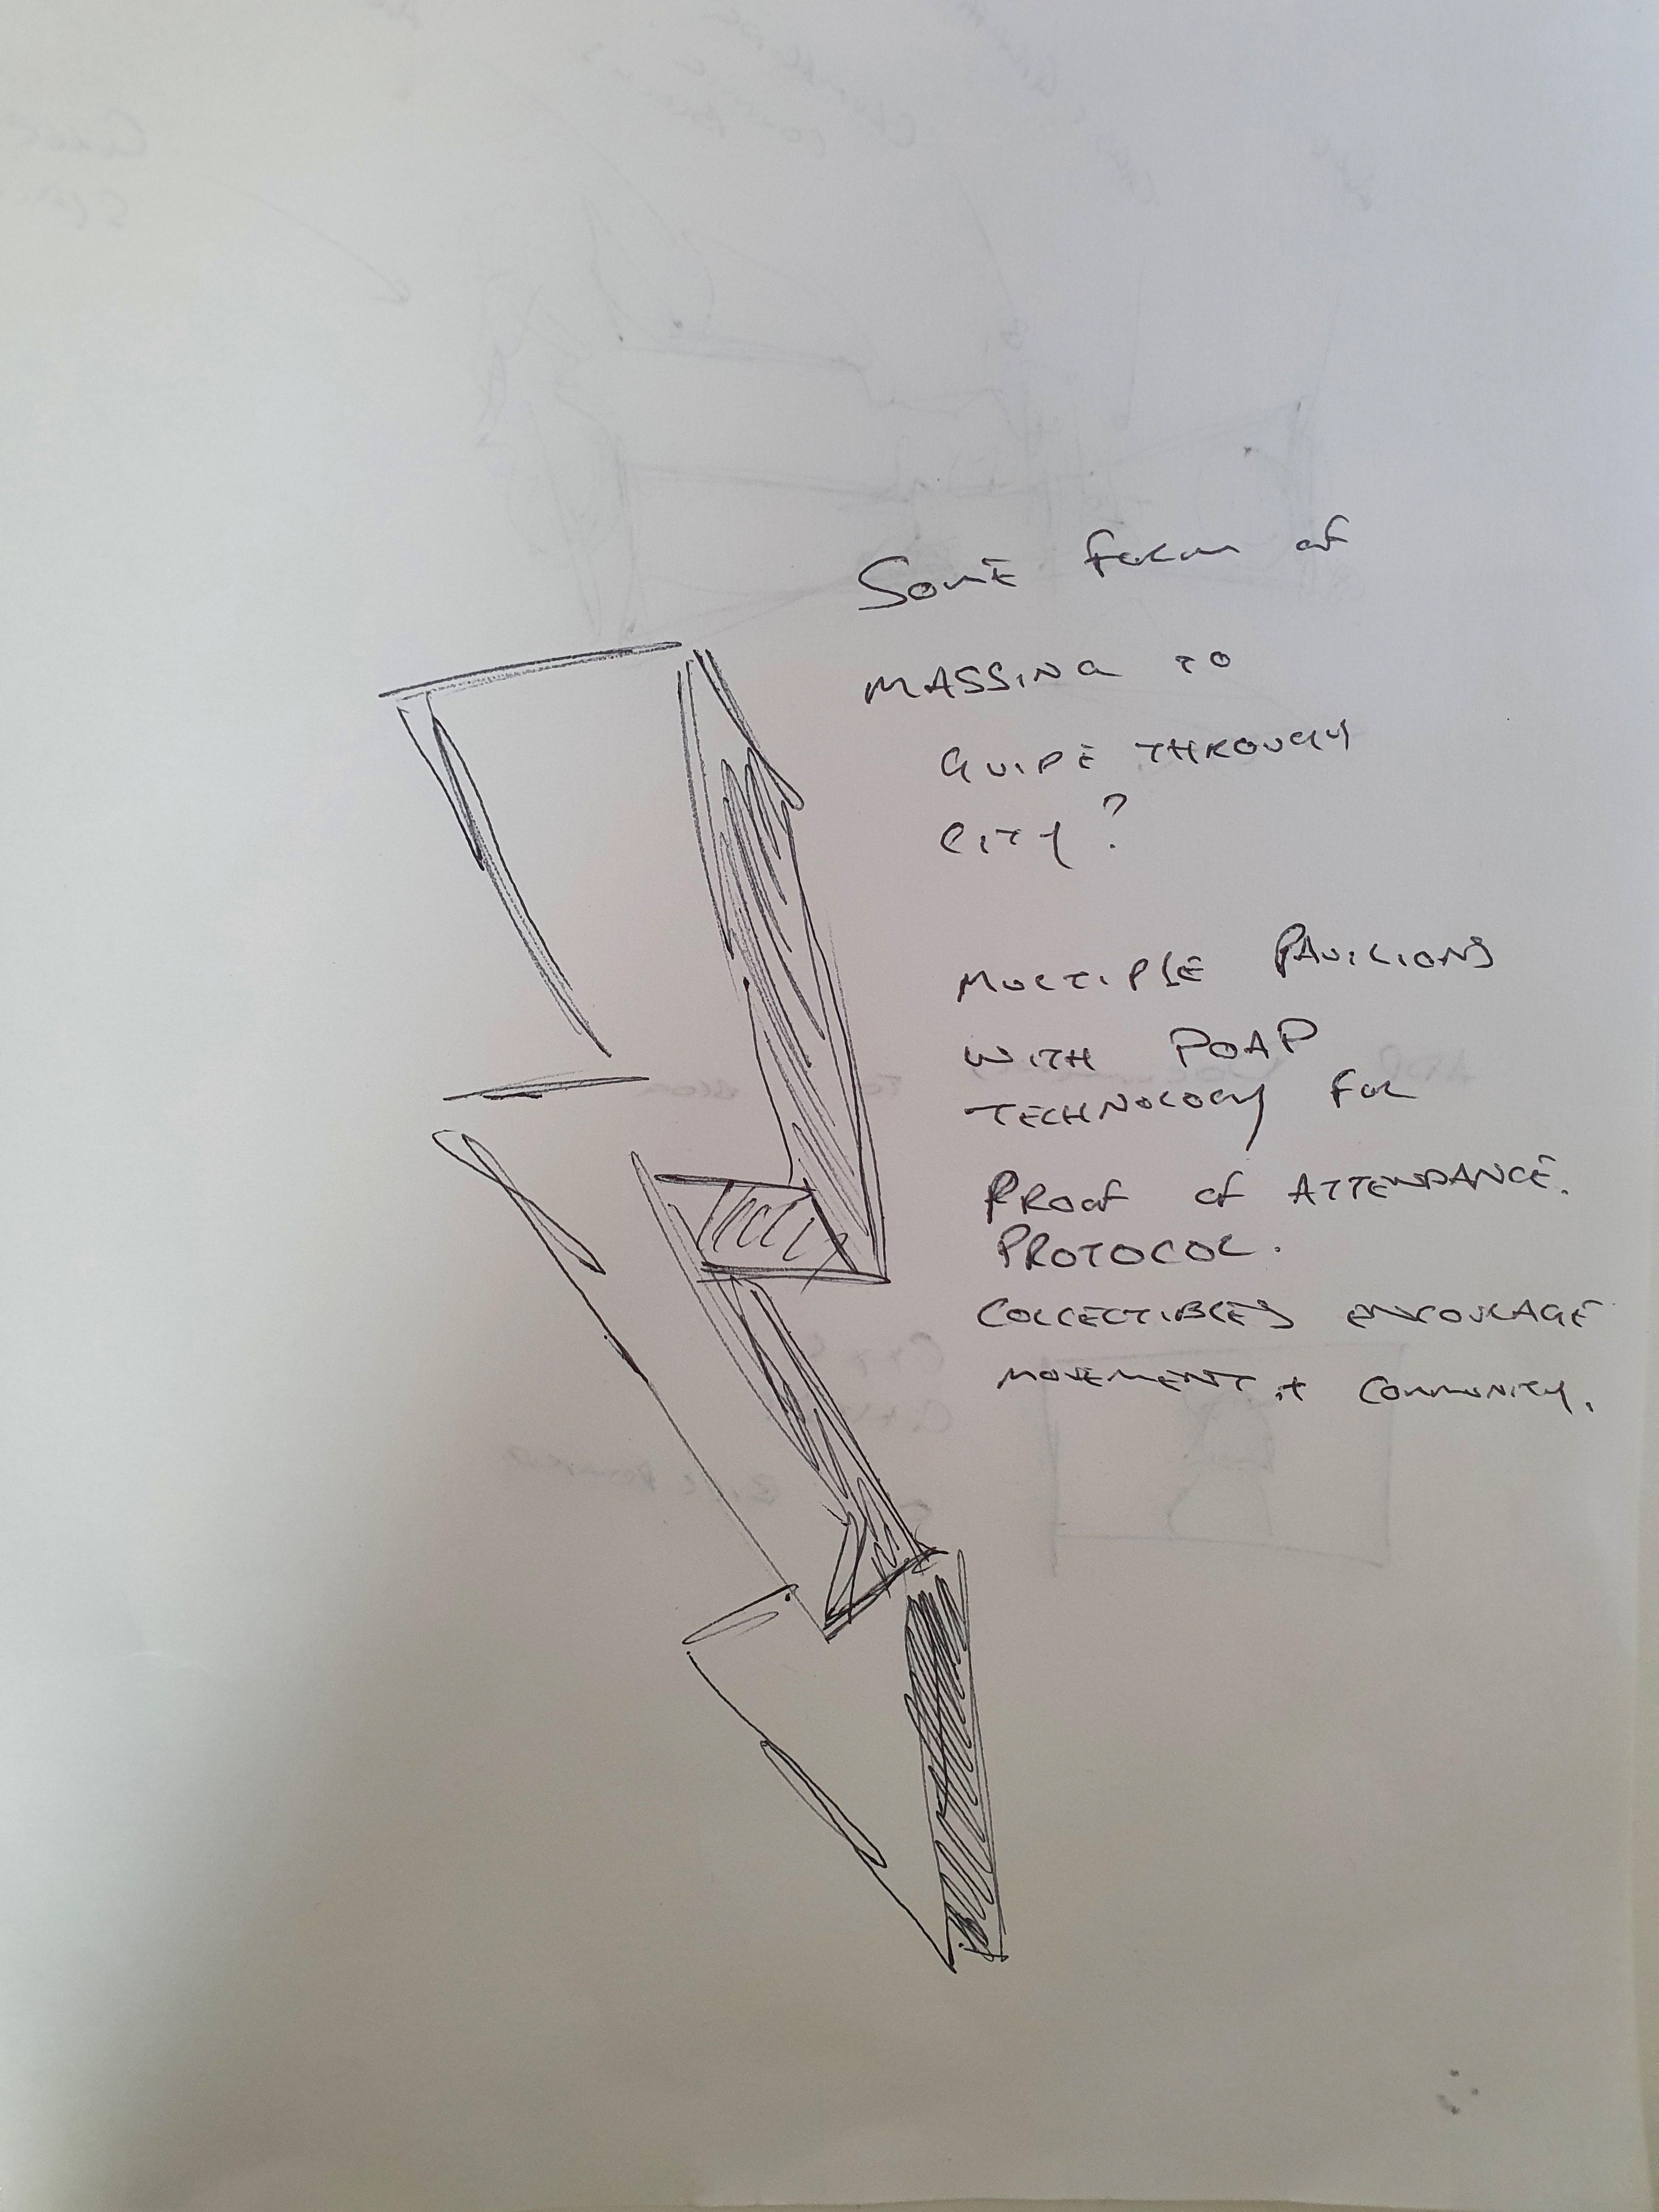 Some form of
MASSING TO
GUIDE THROUGH
CITY?
MULTIPLE PAVILIONS
WITH POAP
TECHNOLOGY FOR
PROOF OF ATTENDANCE.
PROTOCOL.
COLLECTIBLES ENCOURAGE
MOVEMENT + COMMUNITY.